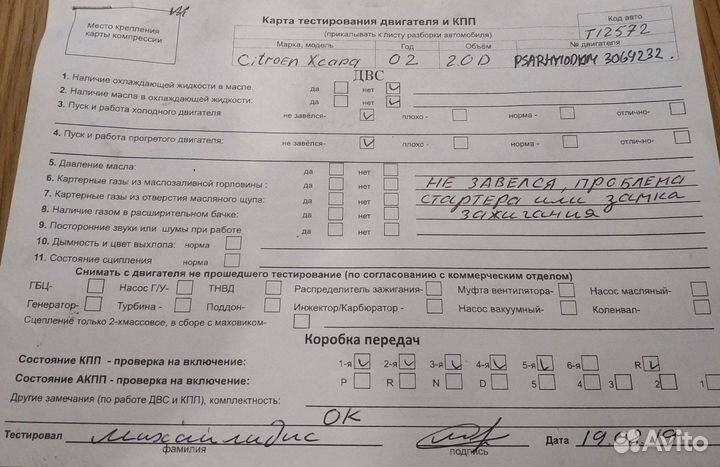 Место крепления
карты компрессии
Карта тестирования двигателя и КПП
(прикалывать к листу разборки автомобиля)
Код авто
T12572
Марка, модель Год Объём № двигателя
Citroen Xсара 02 20D PSARHY10DKM 3064232.
ДВС
1. Наличие охлаждающей жидкости в масле. да нет
2. Наличие масла в охлаждающей жидкости: да нет
3. Пуск и работа холодного двигателя не завёлся- плохо - норма - отлично-
4. Пуск и работа прогретого двигателя: не завёлся- плохо - норма - отлично-
5. Давление масла: да нет
6. Картерные газы из маслозаливной горловины : да нет
7. Картерные газы из отверстия масляного щупа: да нет
8. Наличие газом в расширительном бачке: да нет
9. Посторонние звуки или шумы при работе да нет
10. Дымность и цвет выхлопа: норма
11. Состояние сцепления норма
НЕ ЗАВЕЛСЯ, ПРОБЛЕМА
СТАРТЕРА ИЛИ ЗАМКА
ЗАЖИГАНИЯ
Снимать с двигателя не прошедшего тестирование (по согласованию с коммерческим отделом)
ГБЦ- Насос Г/У- ТНВД Распределитель зажигания- Муфта вентилятора- Насос масляный-
Генератор- Турбина - Поддон- Инжектор/Карбюратор - Насос вакуумный- Коленвал-
Сцепление только 2-хмассовое, в сборе с маховиком-
Коробка передач
Состояние КПП - проверка на включение: 1-я 2-я 3-я 4-я 5-я 6-я R
Состояние АКПП - проверка на включение: P R N D 5 4 3 2 1
Другие замечания (по работе ДВС и КПП), комплектность:
ОК
Тестировал Михайлидис Дата
фамилия подпись
Avito